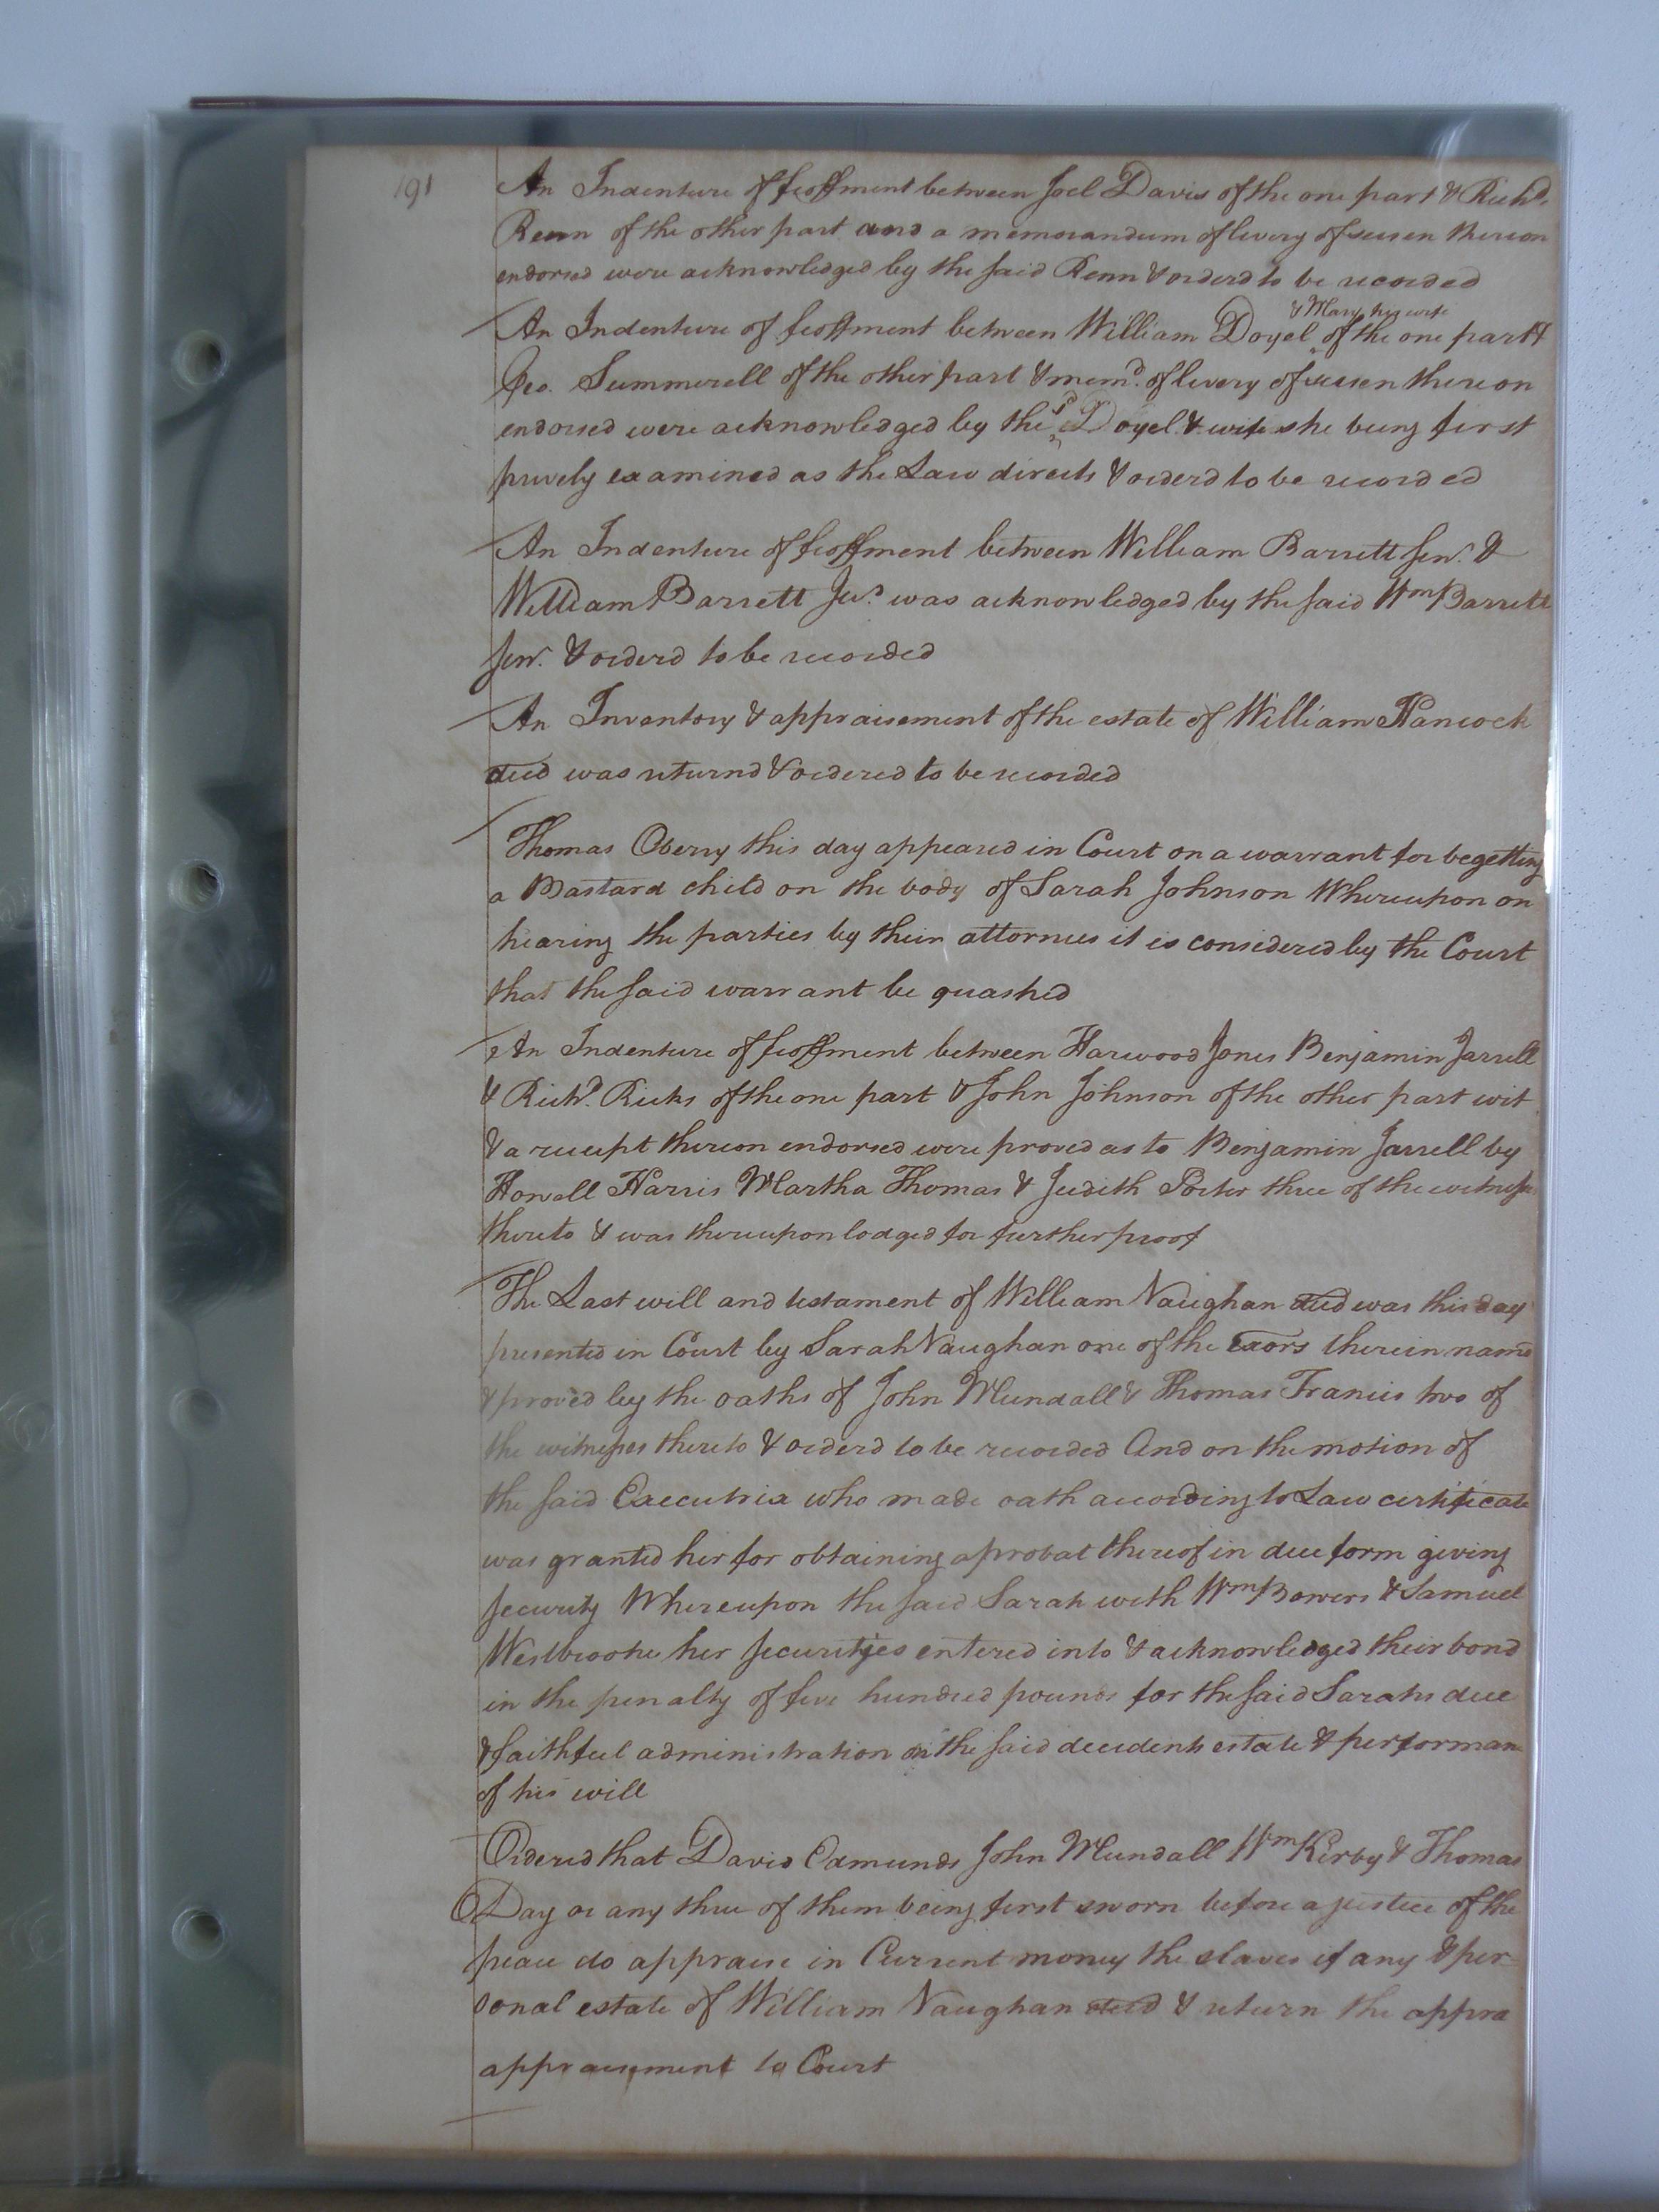 191
An Indenture of feoffment between Joel Davis of the one part & Richd.
Renn of the other part and a memorandum of livery of seisen thereon
endorsed were acknowledged by the said Renn & orderd to be recorded
& Mary his wife
An Indenture of feoffment between William Doyel of the one part &
Geo. Summerell of the other part & memd. of livery of seisen thereon
endorsed were acknowledged by the sd Doyel & wife she being first
privily examined as the Law directs & orderd to be recorded
An Indenture of feoffment between William Barrett Senr. &
William Barrett Junr. was acknowledged by the said Wm Barrett
Senr. & orderd to be recorded
An Inventory & appraisement of the estate of William Hancock
decd was returnd & ordered to be recorded
Thomas Oberry this day appeared in Court on a warrant for begetting
a Bastard child on the body of Sarah Johnson Whereupon on
hearing the parties by their attornies it is considered by the Court
that the said warrant be quashed
An Indenture of feoffment between Harwood Jones Benjamin Jarrell
& Richd. Ricks of the one part & John Johnson of the other part wit
& a receipt thereon endorsed were proved as to Benjamin Jarrell by
Howell Harris Martha Thomas & Judith Porter three of the witnesses
thereto & was thereupon lodged for further proof
The Last will and testament of William Vaughan decd was this day
presented in Court by Sarah Vaughan one of the exors therein named
& proved by the oaths of John Mundall & Thomas Francis two of
the witnesses thereto & orderd to be recorded And on the motion of
the said Executrix who made oath according to Law certificate
was granted her for obtaining a probat thereof in due form giving
security Whereupon the said Sarah with Wm Bowers & Samuel
Westbrooke her securityes entered into & acknowledged their bond
in the penalty of five hundred pounds for the said Sarahs due
& faithful administration on the said decedents estate & performan
of his will
Ordered that David Edmunds John Mundall Wm Kirby & Thomas
Day or any three of them being first sworn before a justice of the
peace do appraise in Current money the slaves if any & per-
sonal estate of William Vaughan decd & return the appra
appraisement to Court